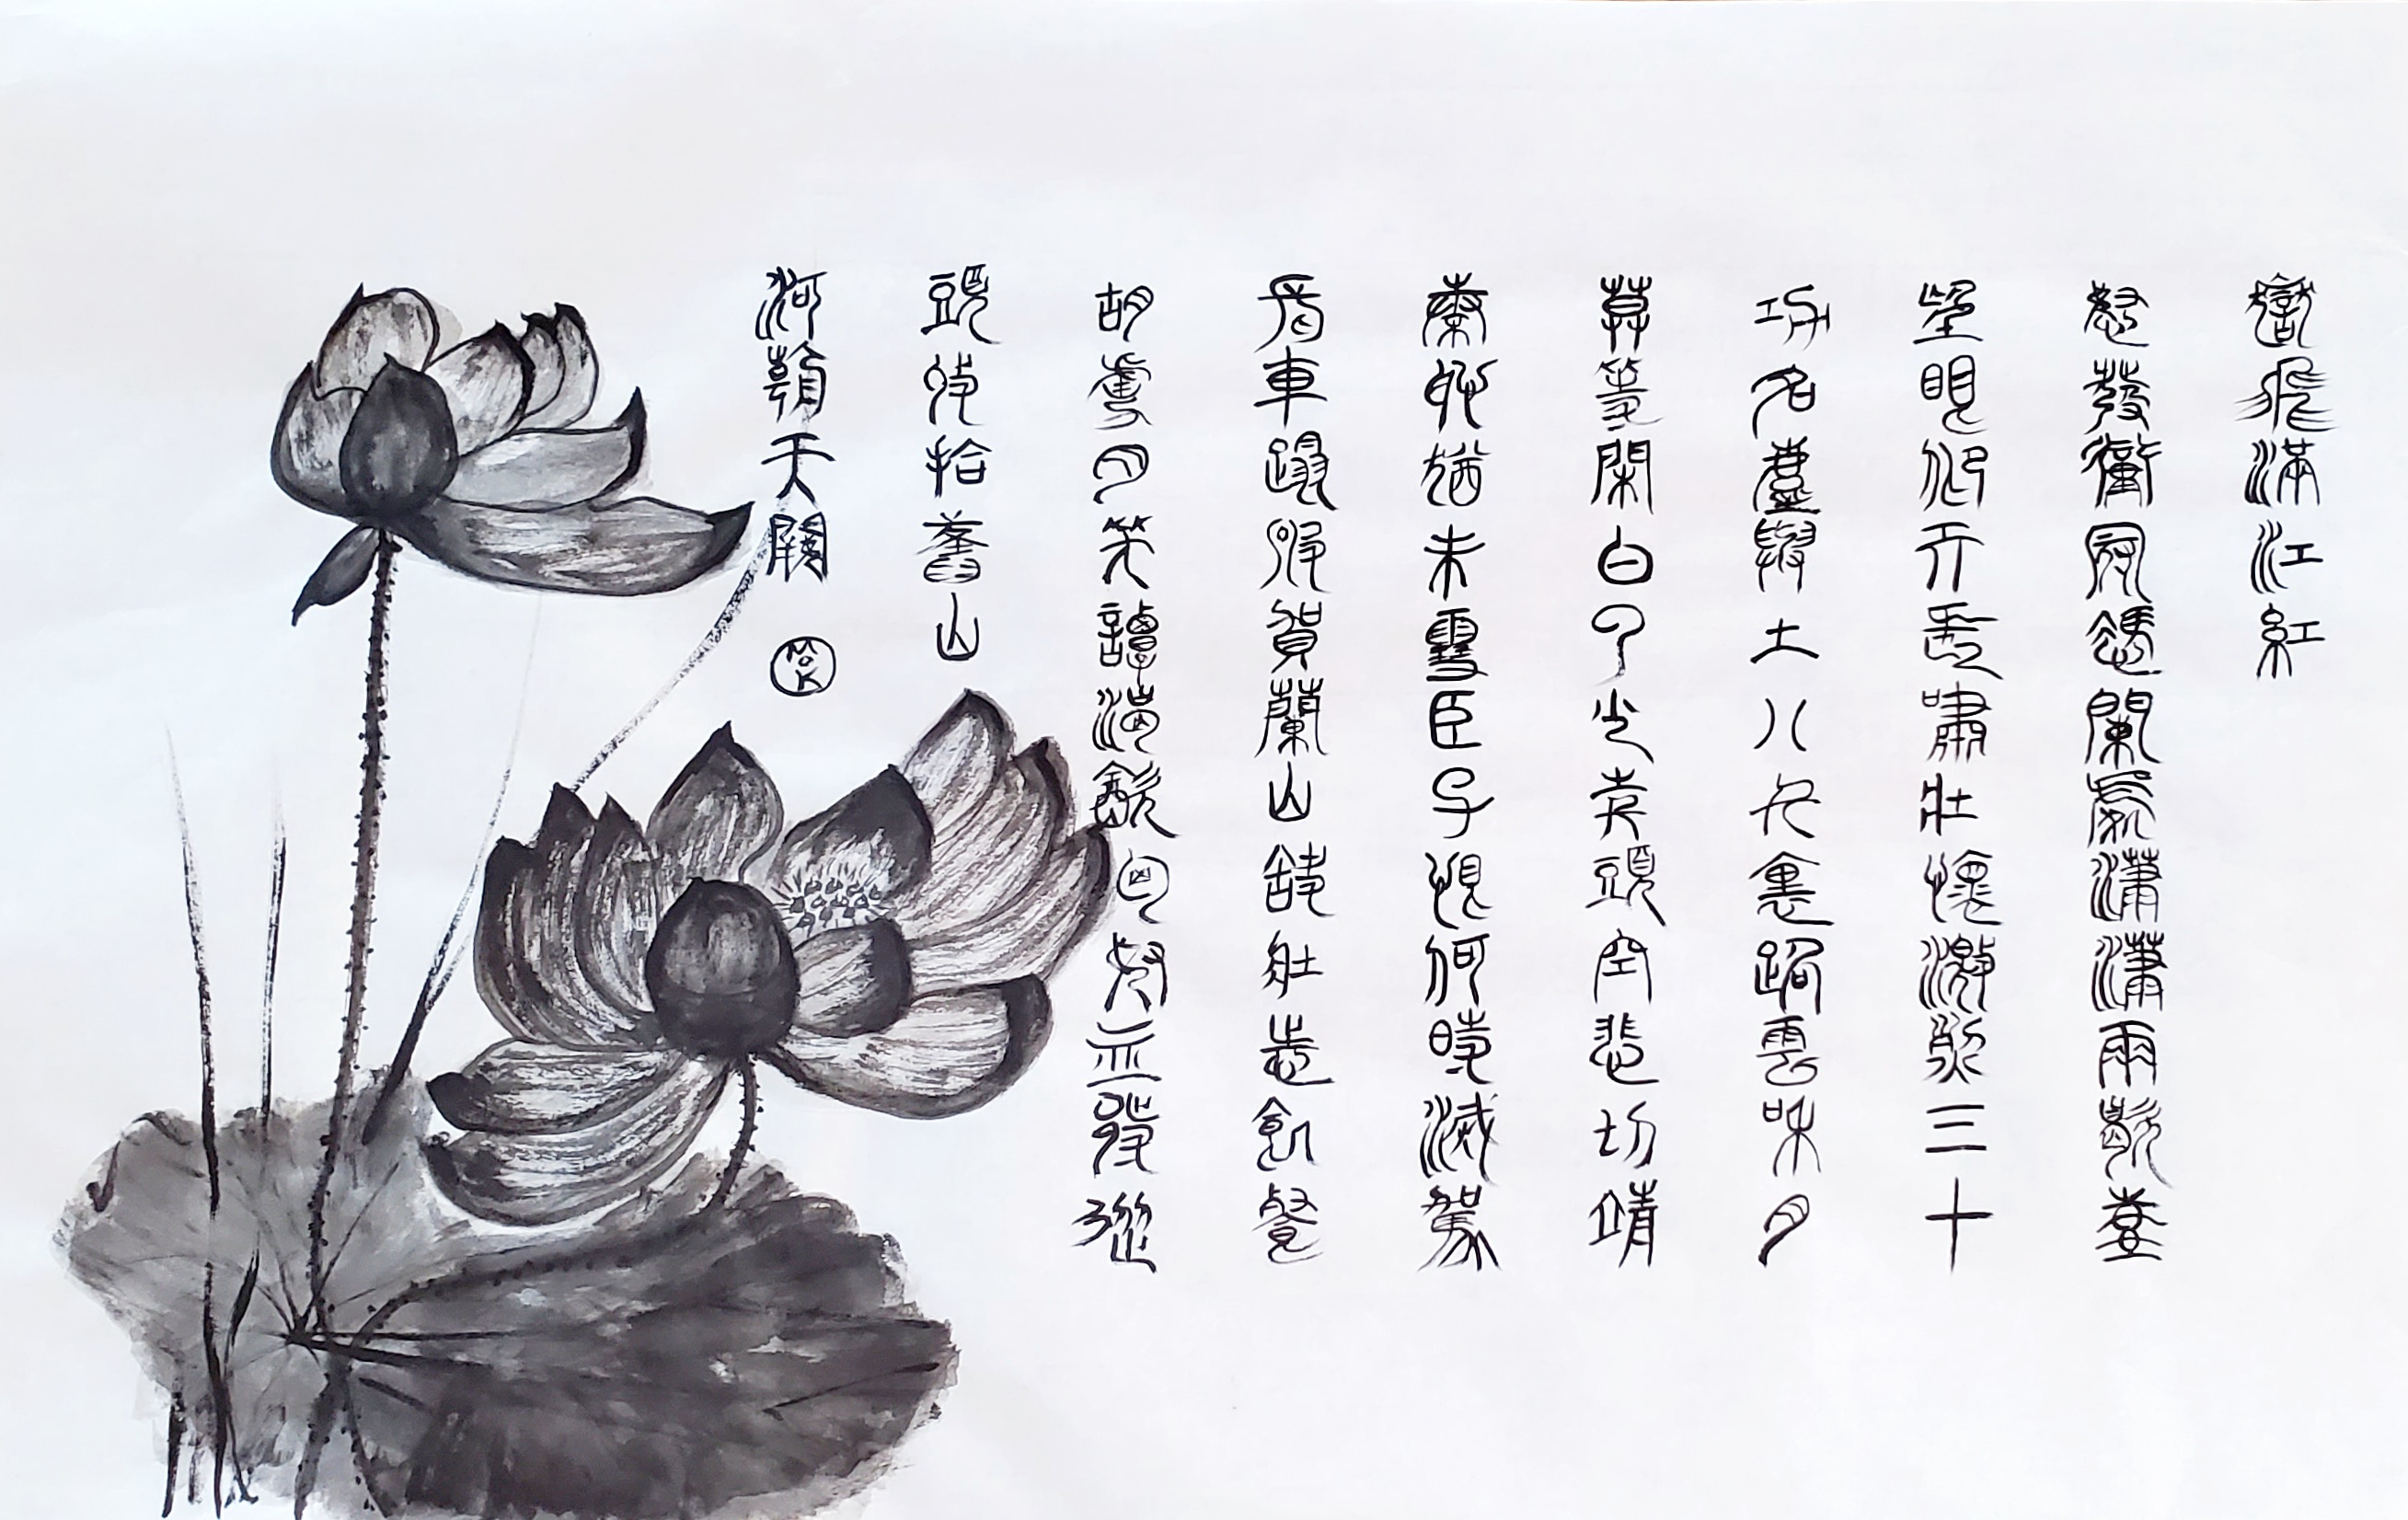 嶽飛滿江紅
怒髮衝冠憑闌處瀟瀟雨歇臺
望眼仰天長嘯壯懷激烈三十
功名塵與土八千裏路雲和月
莫等閑白了少年頭空悲切靖
康恥猶未雪臣子恨何時滅駕
長車踏破賀蘭山缺壯志飢餐
胡虜肉笑譚渴飲匈奴血待從
頭收拾舊山
河朝天闕
MOK